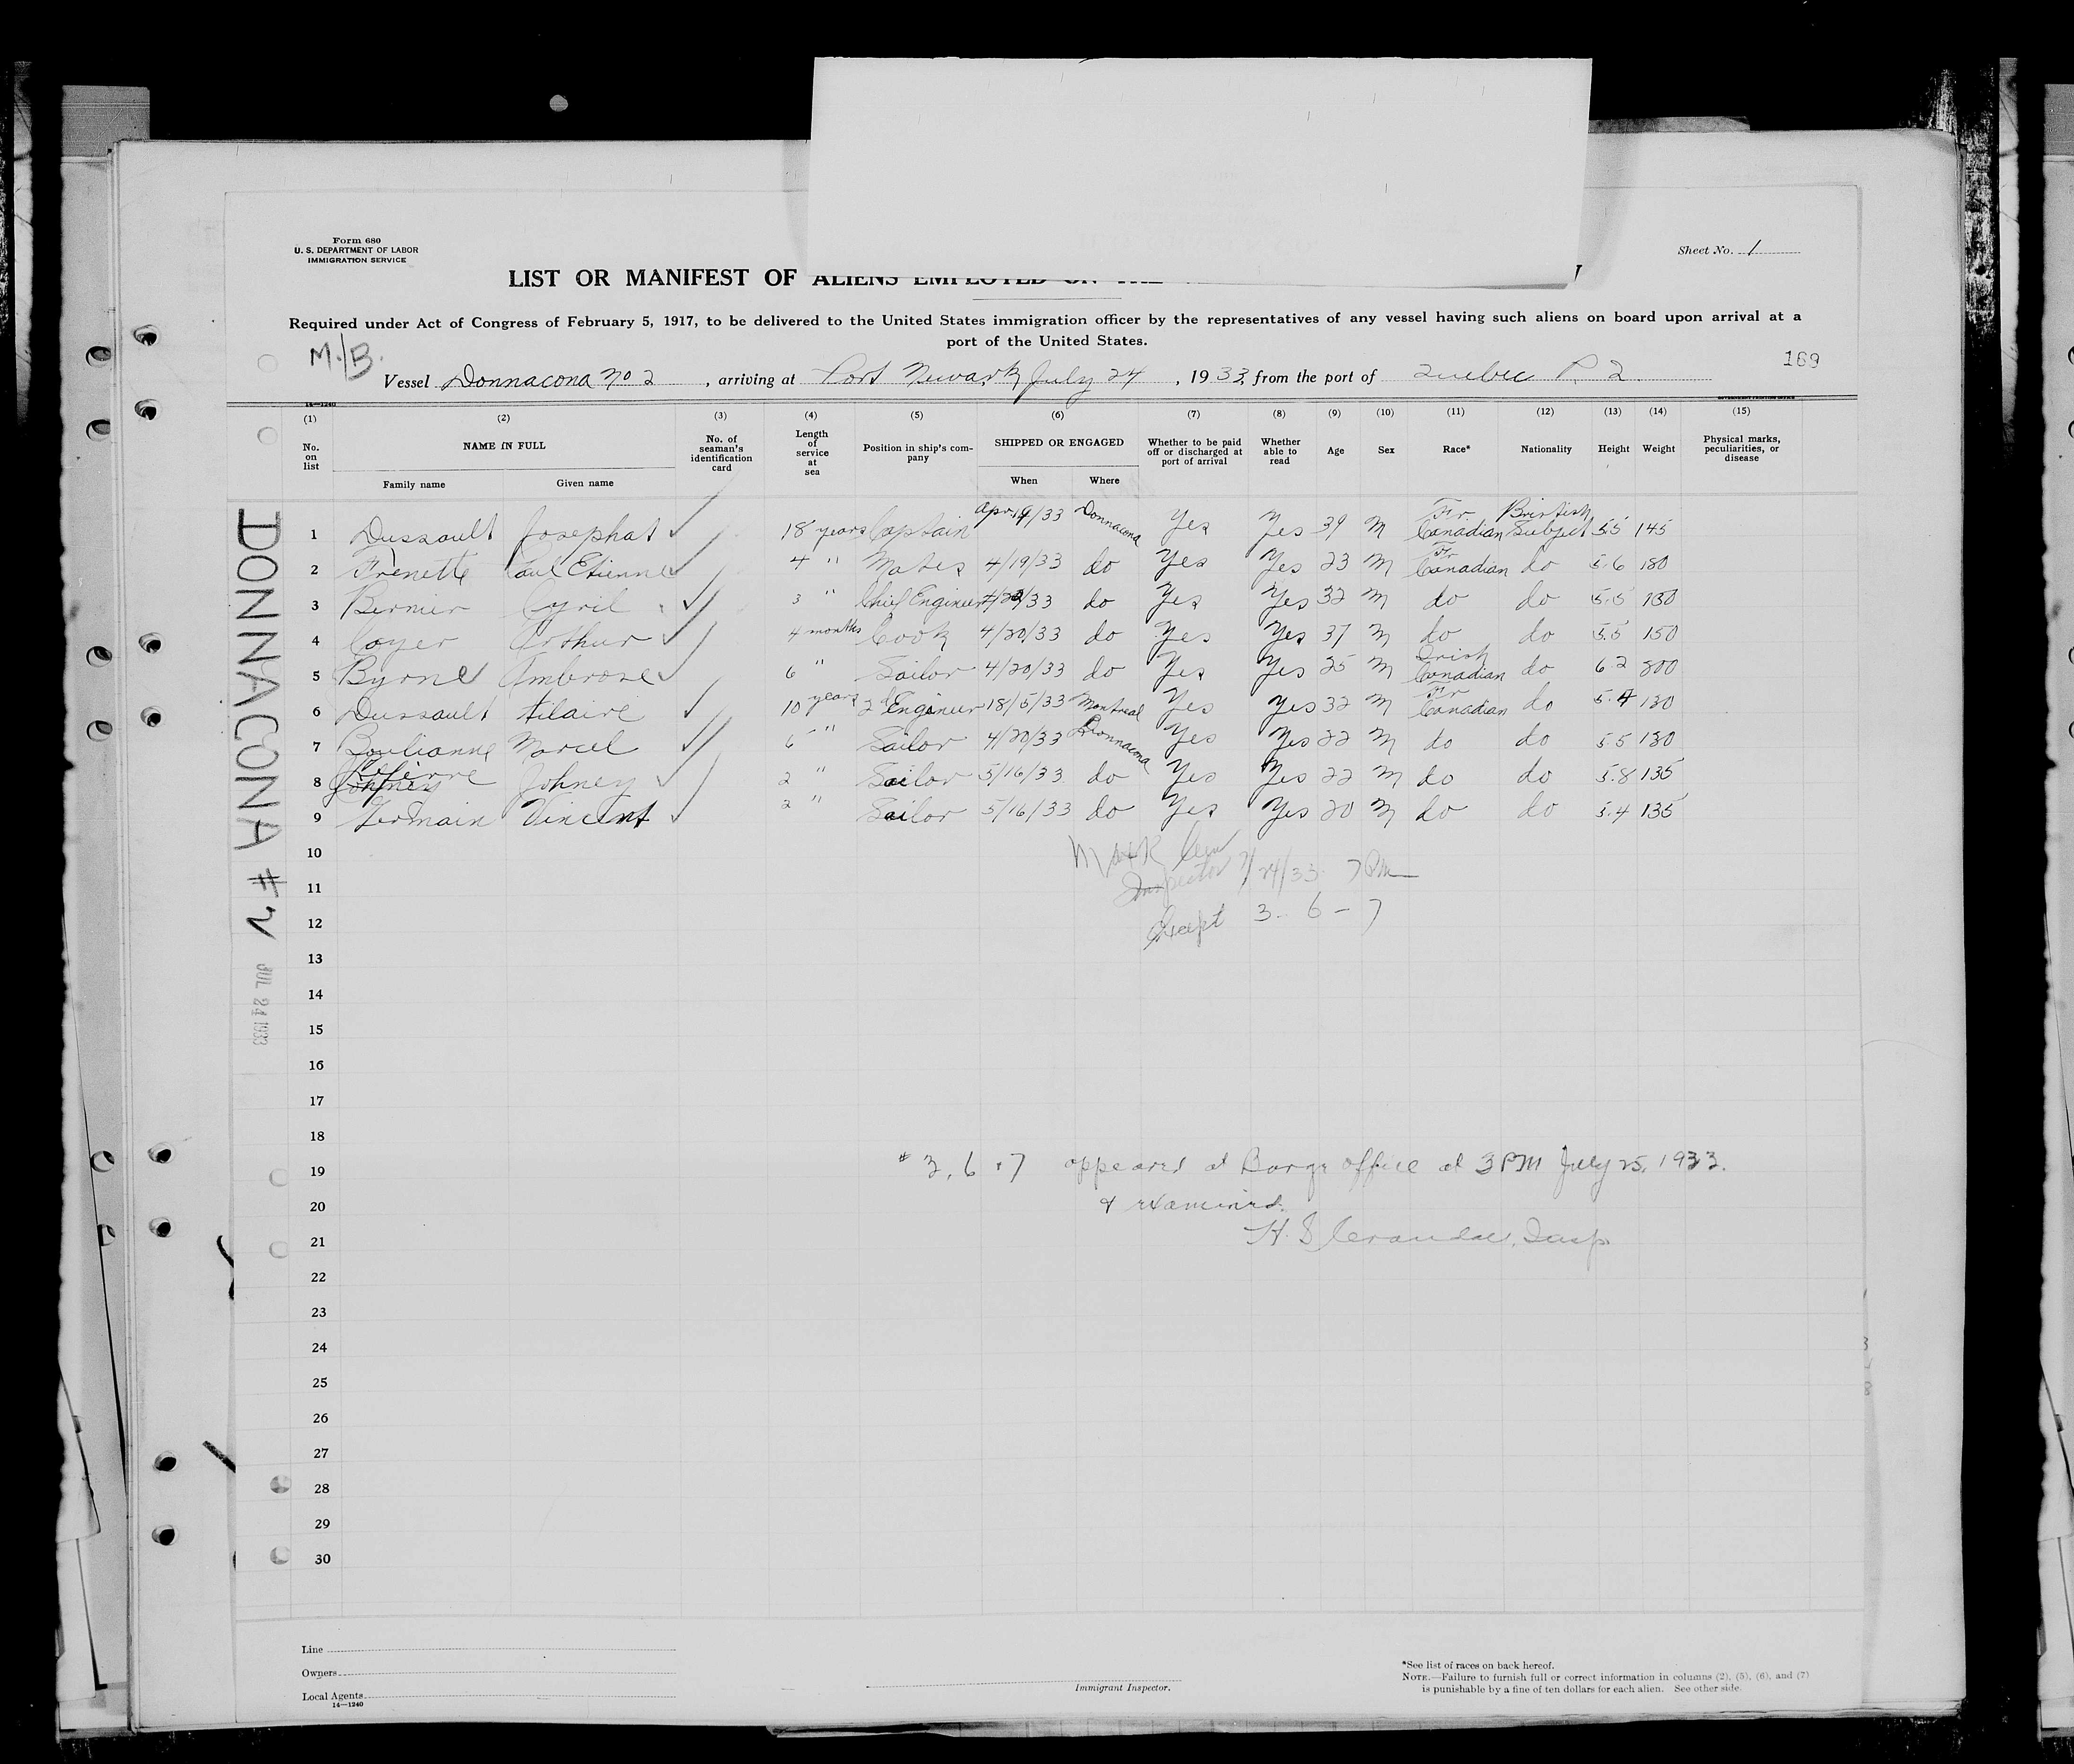 Form 680
U. S. DEPARTMENT OF LABOR
IMMIGRATION SERVICE
Sheet No. 1
LIST OR MANIFEST OF ALIENS EMPLOYED ON THE
Required under Act of Congress of February 5, 1917, to be delivered to the United States immigration officer by the representatives of any vessel having such aliens on board upon arrival at a
port of the United States.
M/B.
169
Vessel Donnacona No 2, arriving at Port Newark July 24, 1933, from the port of Quebec P. Q.
14—1240
(1) (2) (3) (4) (5) (6) (7) (8) (9) (10) (11) (12) (13) (14) (15)
No. on list NAME IN FULL Family name Given name No. of seaman's identification card Length of service at sea Position in ship's company SHIPPED OR ENGAGED When Where Whether to be paid off or discharged at port of arrival Whether able to read Age Sex Race* Nationality Height Weight Physical marks, peculiarities, or disease
1 Dussault Josephat 18 years Captain Apr 19/33 Donnacona Yes Yes 39 M Fr. Canadian British Subject 5.5 145
2 Frenette Paul Etienne 4 " Mates 4/19/33 do Yes Yes 23 M Fr Canadian do 5.6 180
3 Bernier Cyril 3 " Chief Engineer /33 do Yes Yes 32 M do do 5.5 150
4 Coyer Arthur 4 months Cook 4/20/33 do Yes Yes 37 M do do 5.5 150
5 Byrne Ambrose 6 " Sailor 4/20/33 do Yes Yes 25 M Irish Canadian do 6.2 200
6 Dussault Hilaire 10 years 2d Engineer 18/5/33 Montreal Yes Yes 32 M Fr Canadian do 5.4 130
7 Boulianne Marcel 6 " Sailor 4/20/33 Donnacona Yes Yes 22 M do do 5.5 130
8 Johney 2 " Sailor 5/16/33 do Yes Yes 22 M do do 5.8 135
9 Germain Vincent 2 " Sailor 5/16/33 do Yes Yes 20 M do do 5.4 135
10
11 Inspector 7/24/33 7 PM
12 Except 3 - 6 - 7
13
14
15
16
17
18
19 # 3, 6 + 7 appeared at Barge office at 3 PM July 25, 1933.
20 & examined.
21 Insp
22
23
24
25
26
27
28
29
30
DONNACONA # 2
JUL 24 1933
Line
Owners
Local Agents
14—1240
Immigrant Inspector.
*See list of races on back hereof.
NOTE.—Failure to furnish full or correct information in columns (2), (5), (6), and (7)
is punishable by a fine of ten dollars for each alien. See other side.